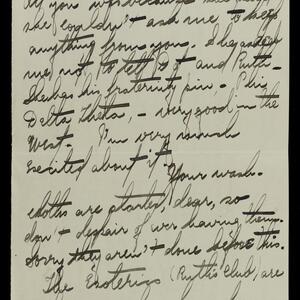 of you
she couldn't and me to keep
anything from you. She
me, not to tell it and Ruth.
She has his fraternity pin - Phi
Delta Theta, - very good in the
West. I'm very much
excited about it.
Your wash-
cloths are started, dear, so
don't despair of ever having them.
Sorry they aren't done before this.
The Esoterics (Ruth's Club) are